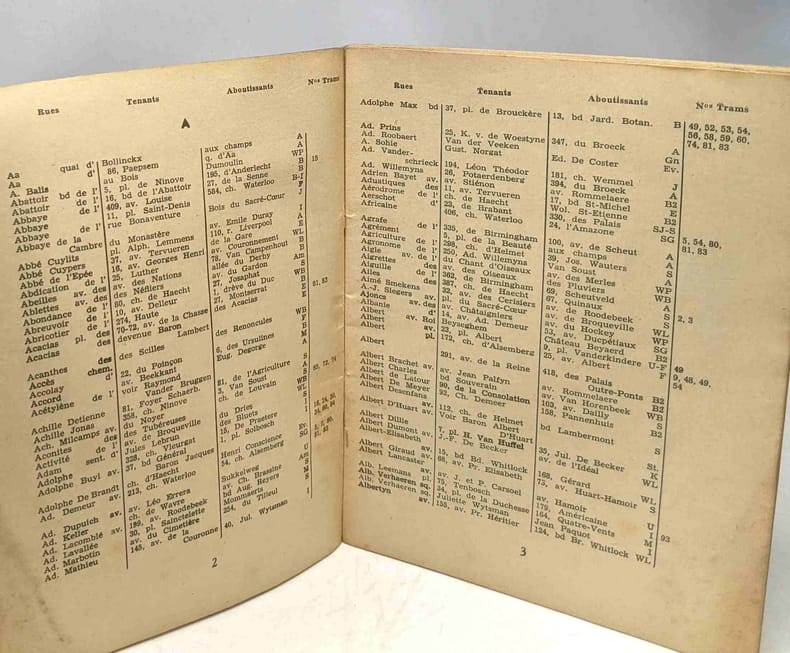 Rues Tenants Aboutissants Nos Trams
A
Aa quai d' Bollinckx aux champs A
Aa d' 86, Paepsem q. d'Aa A
A. Balis au Bois Dumoulin WP
Abattoir bd de l' 5, pl. de Ninove 195, d'Anderlecht B 15
Abattoir de l' 16, bd de l'Abattoir 27, de la Senne B
Abbaye de l' 409, av. Louise 584, ch. Waterloo B-I
Abbaye de l' 11, pl. Saint-Denis F
Abbaye de la Cambre rue Bonaventure Bois du Sacré-Cœur J
du Monastère av. Emile Duray I
Abbé Cuylits pl. Alph. Lemmens 110, r. Liverpool A
Abbé Cuypers 37, av. Tervueren de la Gare E
Abbé de l'Epée 16, av. Georges Henri av. Couronnement WL
Abdication de l' 25, Luther 78, Van Campenhout B
Abeilles av. des av. des Nations allée du Derby B
Ablettes av. des des Néfliers av. du Gardon Am
Abondance de l' 80, ch. de Haecht 27, Josaphat S
Abreuvoir de l' 10, av. Delleur 1, drève du Duc WB
Abricotier de l' 274, Haute 27, Montserrat B
Acacias pl. des 70-72, av. de la Chasse des Acacias E 81, 83
Acacias des devenue Baron Lambert E
Acanthes des des Scilles des Renoncules WB
Accès chem. d' F
Accolay d' 22, du Poinçon 6, des Ursulines B
Accord av. Beekkant Eug. Degorge M
Acétylène de l' voir Raymond Vander Bruggen A
Achille Detienne 81, Foyer Schaerb. 81, de l'Agriculture S 65, 72, 74
Achille Jonas 258, ch. Ninove 3, Van Soust A
Ach. Milcamps av. du Noyer ch. de Louvain
Aconites des des Tubéreuses
Activité de l' av. de Broqueville du Dries
Adam sent. d' Jules Lebrun des Bluets
Adolphe 328, ch. Vleurgat 15, De Praetere I
Adolphe Buyl av. 37, bd Général Jacques 1, pl. Solbosch I
Adolphe De Brandt ch. d'Haecht Henri Conscience Ev.
Ad. Demeur av. 213, ch. Waterloo 54, ch. Alsemberg SG 81, 83
Ad. Dupuich av. av. Léo Errera Sukkelweg U
Ad. Keller ch. de Wavre av. Ch. Brassine
Ad. Lacomblé av. 189, av. Roodebeek bd Aug. Reyers S
Ad. Lavallée 30, pl. Sainctelette Mommaerts M
Ad. Marbotin av. du Cimetière 254, du Tilleul
Ad. Mathieu 145, av. de la Couronne 40, Jul. Wytsman I
2
Rues Tenants Aboutissants Nos Trams
Adolphe Max bd 37, pl. de Brouckère 13, bd Jard. Botan. B 49, 52, 53, 54,
56, 58, 59, 60,
74, 81, 83
Ad. Prins 25, K. v. de Woestyne 347, du Broeck A
Ad. Roobaert Van der Veeken Gn
A. Sohie Gust. Norgat Ed. De Coster Ev.
Ad. Vanderschrieck 194, Léon Théodor 181, ch. Wemmel J
Ad. Willemyns 26, Potaerdenberg 394, du Broeck A
Adrien Bayet av. av. Stiénon av. Rommelaere B2
Aduatiques des 11, av. Tervueren 17, bd St-Michel E
Aérodrome de l' ch. de Haecht Wol. St-Etienne B2
Aerschot d' 23, de Brabant 330, des Palais SJ-S
Africaine 406, ch. Waterloo 24, l'Amazone SG 5, 54, 80,
81, 83
Agrafe de l' 335, de Birmingham 100, av. de Scheut A
Agrément de l' 5, pl. de la Beauté aux champs A
Agriculture de l' 298, ch. d'Helmet 39, Jos. Wauters S
Agronome de l' 250, Ad. Willemyns Van Soust A
Aigle de l' du Chant d'Oiseaux av. des Merles
Aigrettes av. des av. des Oiseaux des Pluviers WP
Aiguille de l' 362, de Birmingham 69, Scheutveld A
Ailes des 387, ch. de Haecht 67, Quinaux S
Aimé Smekens av. 32, av. des Cerisiers av. de Roodebeek S 2, 3
A.-J. Slegers av. pl. du Sacré-Cœur av. de Broqueville WL
Ajoncs des av. Châtaigniers av. du Hockey WP
Albanie d' 14, av. Ad. Demeur 53, av. Ducpétiaux SG
Albert av. Roi Beyseghem Château Beyaerd B2
Albert pl. 23, pl. Albert 9, pl. Vanderkindere U-F 49
Albert av. 172, ch. d'Alsemberg F 9, 48, 49,
54
Albert 291, av. de la Reine 418, des Palais Outre-Ponts B2
Albert Brachet av. av. Jean Palfyn av. Rommelaere B2
Albert Charles bd Souverain av. Van Horenbeek WB
Albert de Latour 90, de la Consolation 103, av. Dailly S
Albert De Meyer 92, Ch. Demeer 158, Pannenhuis B2
Albert Desenfans av. 112, ch. de Helmet bd Lambermont S
Albert D'Huart av. Voir Baron Albert D'Huart
Albert Dillie 7, pl. H. Van Huffel
Albert Dumont av. J.-F. De Becker 35, Jul. De Becker St.
Albert-Elisabeth av. av. de l'Idéal K
Albert Giraud av. 15, bd Bd. Whitlock 168, Gérard WL
Albert Lancaster 68, av. Pr. Elisabeth 73, av. Huart-Hamoir S
Alb. Leemans pl. av. J. et P. Carsoel av. Hamoir U
Alb. Verhaeren av. 75, Tenbosch 179, Américaine I 93
Alb. Verhaeren sq. 34, pl. de la Duchesse 164, Quatre-Vents M
Juliette Wytsman Jean Paquot I
Albertyn av. 155, av. Pr. Héritier 124, bd Br. Whitlock WL
3